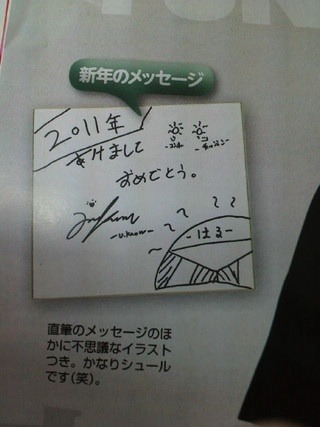 新年のメッセージ
2011年
あけまして
おめでとう。
-U.know-
-はる-
直筆のメッセージのほ
かに不思議なイラスト
つき。かなりシュール
です(笑)。